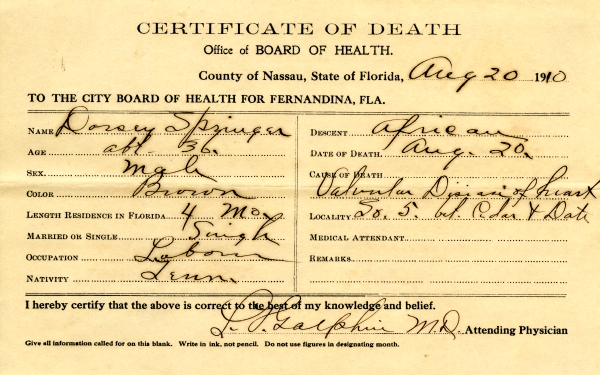 CERTIFICATE OF DEATH
Office of BOARD OF HEALTH.
County of Nassau, State of Florida, Aug 20 1910
TO THE CITY BOARD OF HEALTH FOR FERNANDINA, FLA.
NAME Dorsey Springer
AGE abt 36.
SEX. Male
COLOR Brown
LENGTH RESIDENCE IN FLORIDA 4 Mo.
MARRIED OR SINGLE Single
OCCUPATION Labour
NATIVITY Tenn.
DESCENT African
DATE OF DEATH. Aug. 20.
CAUSE OF DEATH
Valvular Disease of heart
LOCALITY So. 5. bet. Cedar & Date
MEDICAL ATTENDANT.
REMARKS.
I hereby certify that the above is correct to the best of my knowledge and belief.
M.D. Attending Physician
Give all information called for on this blank. Write in ink, not pencil. Do not use figures in designating month.